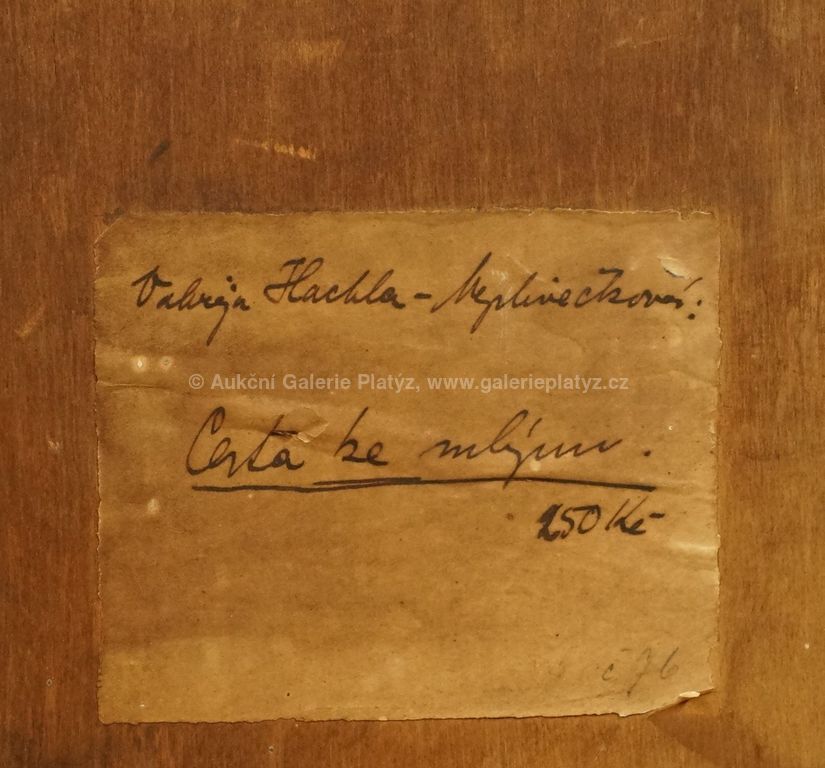 Valerija Hachla-Myslivečková:
© Aukční Galerie Platýz, www.galerieplatyz.cz
Cesta ke mlýnu.
150 Kč
č 76